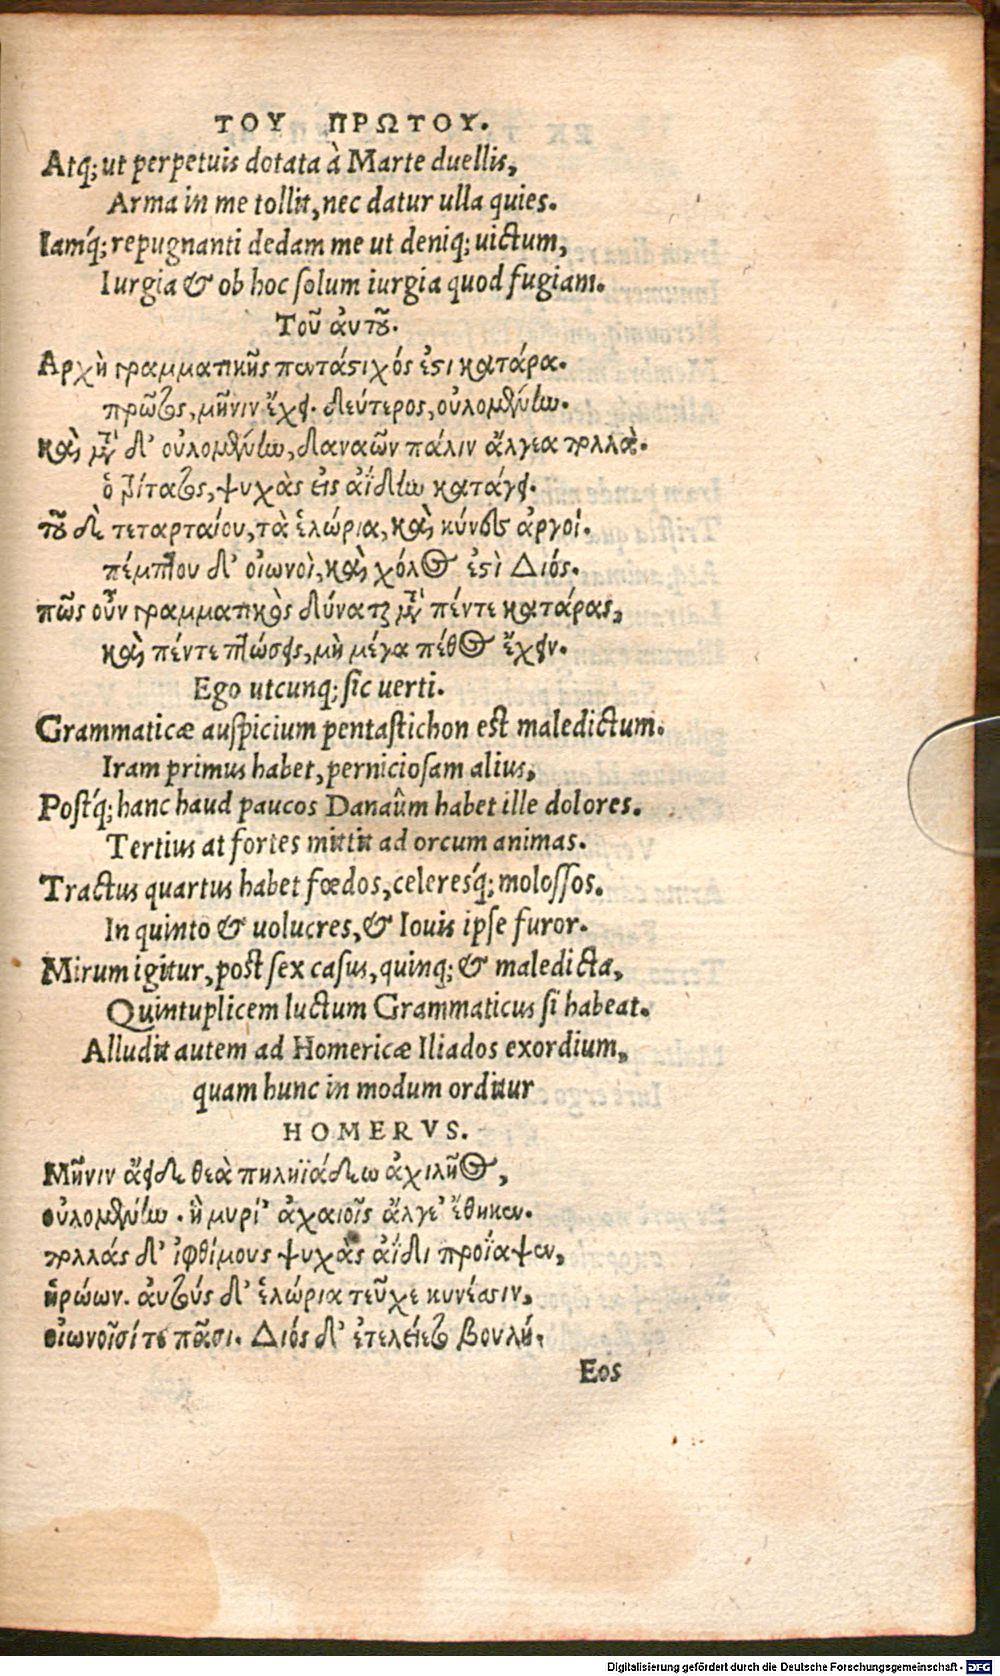 ΤΟΥ ΠΡΩΤΟΥ.
Atq; ut perpetuis dotata à Marte duellis,
Arma in me tollit, nec datur ulla quies.
Iamq́; repugnanti dedam me ut deniq; uictum,
Iurgia & ob hoc solum iurgia quod fugiam.
Τοῦ ἀυτοῦ.
Αρχὴ γραμματικῆς πεντάστιχός ἐστι κατάρα.
πρῶτος, μῆνιν ἔχει. δεύτερος, οὐλομένην.
καὶ μετὰ δ' οὐλομένην, δαναῶν πάλιν ἄλγεα πολλὰ.
ὁ τρίτατος, ψυχὰς εἰς ἀΐδην κατάγει.
τοῦ δὲ τεταρταίου, τὰ ἑλώρια, καὶ κύνες ἀργοί.
πέμπτου δ' οἰωνοὶ, καὶ χόλος ἐστὶ Διός.
πῶς οὖν γραμματικὸς δύναται μετὰ πέντε κατάρας,
καὶ πέντε πτώσεις, μὴ μέγα πένθος ἔχειν.
Ego utcunq; sic uerti.
Grammaticæ auspicium pentastichon est maledictum.
Iram primus habet, perniciosam alius,
Postq́; hanc haud paucos Danaûm habet ille dolores.
Tertius at fortes mittit ad orcum animas.
Tractus quartus habet fœdos, celeresq́; molossos.
In quinto & uolucres, & Iouis ipse furor.
Mirum igitur, post sex casus, quinq; & maledicta,
Quintuplicem luctum Grammaticus si habeat.
Alludit autem ad Homericæ Iliados exordium,
quam hunc in modum orditur
HOMERVS.
Μῆνιν ἄειδε θεὰ πηληϊάδεω ἀχιλῆος,
οὐλομένην. ἣ μυρί' ἀχαιοῖς ἄλγε' ἔθηκεν.
πολλάς δ' ἰφθίμους ψυχὰς ἀΐδι προΐαψεν,
ἡρώων. ἀυτούς δ' ἑλώρια τεῦχε κυνέσσιν,
οἰωνοῖσί τε πᾶσι. Διός δ' ἐτελείετο βουλή.
Εος
Digitalisierung gefördert durch die Deutsche Forschungsgemeinschaft - DFG